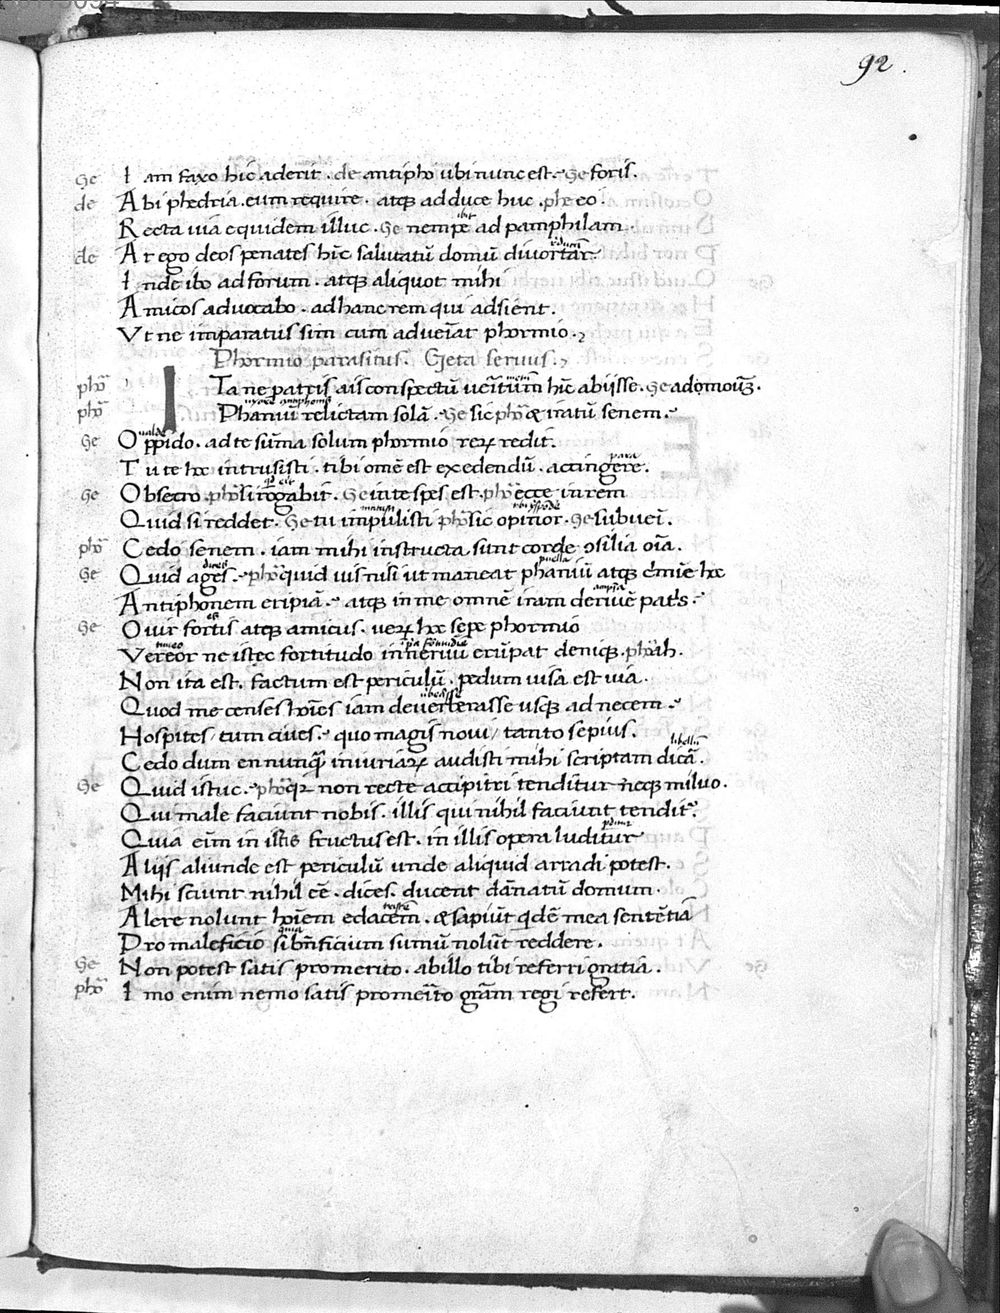 92.
Ge I am faxo hic aderit. de antipho ubi nunc est. Ge foris.
de A bi phedria. eum require. atq; adduce huc. phe eo.
R ecta uia equidem illuc. Ge nempe ad pamphilam.
de A t ego deos penates hīc salutatū domū diuortar
I nde ibo ad forum. atq; aliquot mihi
A micos aduocabo. ad hanc rem qui adsient.
V t ne imparatus sim cum adueīat phormio.
Phormio parasitus. Geta seruus.
phō I Ta ne patris ais conspectū ueritūm hīc abijsse. Ge admodū.
phō Phaniū relictam solā. Ge sic phō & iratū senem.
Ge O ppido. ad te sūma solum phormio rerum redit.
T u te hoc intrusisti. tibi omē est exedendū. accingere.
Ge O bsecro. phō si rogabit. Ge in te spes est. phō ecce in rem
Q uid si reddet. Ge tu impulisti phō sic opinor. Ge subueī.
phō C edo senem. iam mihi instructa sunt corde ↄsilia oīa.
Ge Q uid ages. phō quid uis nisi ut maneat phaniū atq; crīmīe hoc
A ntiphonem eripiā. atq; in me omnē iram deriuē patrīs.
Ge O uir fortis atq; amicus. uerum hoc sepe phormio
V ereor ne istec fortitudo in neruū erūpat deniq; phō ah.
N on ita est. factum est periculū. pedum uisa est uia.
Q uod me censes hoīes iam deuerberasse usq; ad necem.
H ospites tum ciues. quo magis noui tanto sepius.
C edo dum en nunq̄ iniuriarum audisti mihi scriptam dicā.
Ge Q uid istuc. phō quia non recte accipitri tenditur neq; miluo.
Q ui male faciunt nobis. illis qui nihil faciunt tendit̄.
Q uia eīm in istis fructus est. in illis opera luditur
A lijs aliunde est periculū unde aliquid arradi potest.
M ihi sciunt nihil eē. dices. ducent dānatū domum.
A lere nolunt hoīem edacem. & sapiūt qdē mea sentētia
P ro maleficio si bn̄ficium sumū nolūt reddere.
Ge N on potest satis pro merito. ab illo tibi referri gratia.
phō I mo enim nemo satis pro merīto grām regi refert.